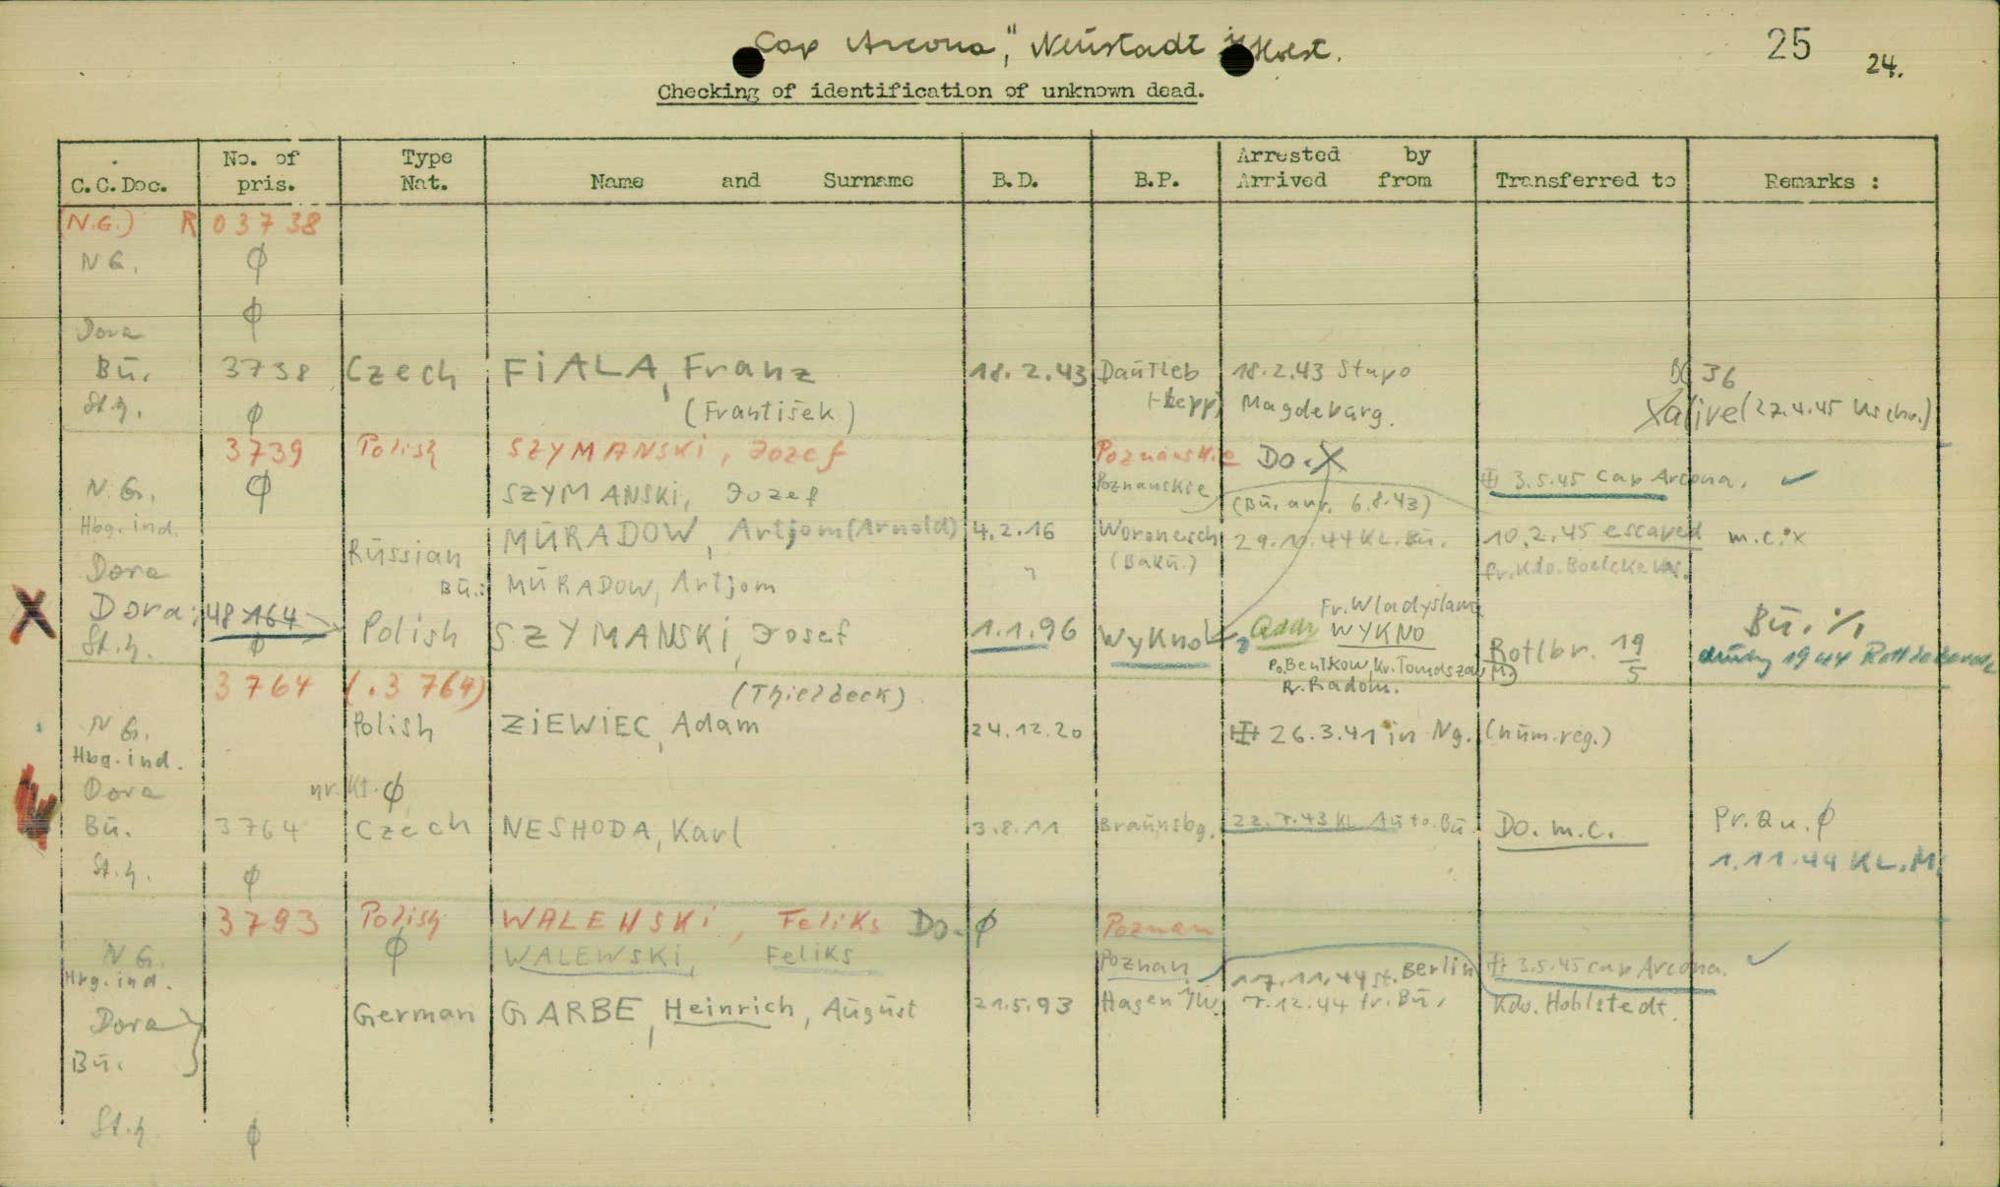 "Cap Arcona," Neustadt i/Holst.
25
24.
Checking of identification of unknown dead.
C.C.Doc. No. of pris. Type Nat. Name and Surname B.D. B.P. Arrested by Arrived from Transferred to Remarks :
(N.G.) R 03738
NG. ϕ
ϕ
Dora
Bü. 3738 Czech FiALA, Franz 18.2.43 18.2.43 Stapo 36
St.h. ϕ (František) Magdeburg. alive (27.4.45
3739 Polish SZYMANSKi, Jozef Poznanskie Do. X
N.G. ϕ SZYMANSKi, Jozef Poznanskie 3.5.45 Cap Arcona. ✓
(Bü. 6.8.43)
Hbg. ind. Russian MÜRADOW, Artjom (Arnold) 4.2.16 Woronesch 29.11.44 KL. Bü. 10.2.45 escaped m.c. x
Dora (Bakü.) fr. Kdo. Boelcke Kas.
Bü.: MÜRADOW, Artjom "
X Dora: 48164 Polish SZYMANSKi, Josef 1.1.96 Wykno Addr Fr. Wladyslawa WYKNO Rotlbr. 19/5 Bü. ·/.
St.h. ϕ Po. Benikow, Kr. Tomaszow M. 1944
R. Radom.
3764 (.3764) (Thielbeck)
N G. Polish ZiEWiEC, Adam 24.12.20 26.3.41 in Ng. (num. reg.)
Hbg. ind.
Dora nr. Kt. ϕ
Bü. 3764 Czech NESHODA, Karl 3.8.11 Braunsbg. 22.7.43 KL Bü. Do. m.c. Pr. Qu. ϕ
St.h. ϕ 1.11.44 KL. M.
3793 Polish WALEWSKi, Feliks Do. ϕ Poznan
N G. ϕ WALEWSKi, Feliks Poznan 3.5.45 Cap Arcona. ✓
Hbg. ind. 17.11.44 St. Berlin
Dora German GARBE, Heinrich, August 21.5.93 Hagen i/W. 7.12.44 fr. Bü. Kdo. Hohlstedt.
Bü.
St.h. ϕ